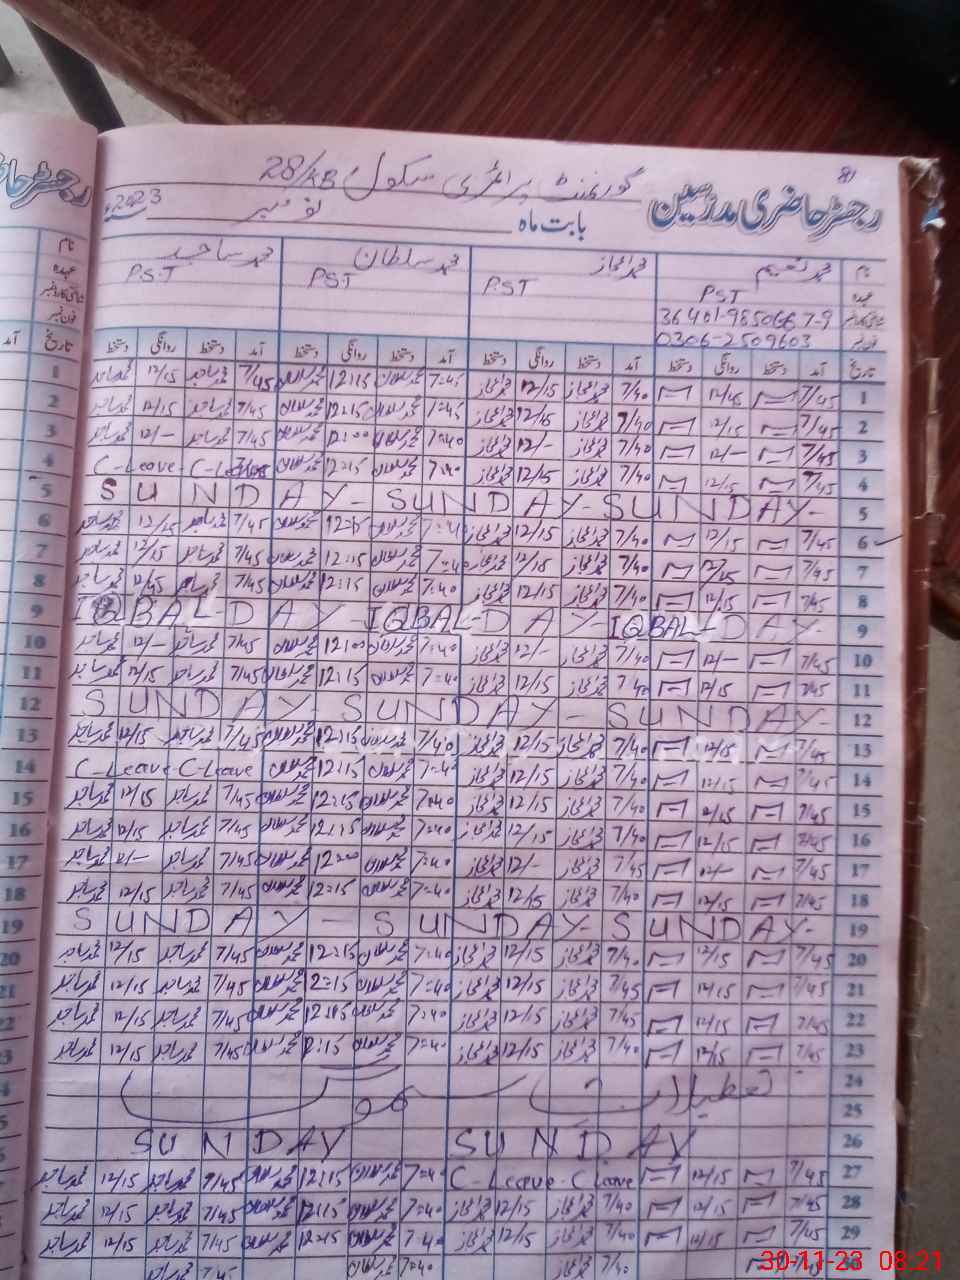 81
گورنمنٹ پرائمری سکول 28/KB
رجسٹر حاضری مدرسین
بابت ماہ نومبر 2023
نام محمد نعیم محمد اعجاز محمد سلطان محمد ساجد
عہدہ PST PST PST PST
36401-9850667-9
فون نمبر 0306-2509603
تاریخ آمد دستخط روانگی دستخط آمد دستخط روانگی دستخط آمد دستخط روانگی دستخط آمد دستخط روانگی دستخط
1 7/45 12/45 7/40 اعجاز 12/15 اعجاز 7=45 محمد سلطان 12=15 محمد سلطان 7/45 محمد ساجد 12/15 محمد ساجد
2 7/45 12/15 7/40 اعجاز 12/15 اعجاز 7=45 محمد سلطان 12=15 محمد سلطان 7/45 محمد ساجد 12/15 محمد ساجد
3 7/45 12/- 7/40 اعجاز 12/- اعجاز 7=40 محمد سلطان 12=00 محمد سلطان 7/45 محمد ساجد 12/- محمد ساجد
4 7/45 12/15 7/40 اعجاز 12/15 اعجاز 7=40 محمد سلطان 12=15 محمد سلطان C-Leave-C-Leave
5 SUNDAY-SUNDAY-SUNDAY-
6 7/45 12/15 7/40 اعجاز 12/15 اعجاز 7=40 محمد سلطان 12=15 محمد سلطان 7/45 محمد ساجد 12/15 محمد ساجد
7 7/45 12/15 7/40 اعجاز 12/15 اعجاز 7=40 محمد سلطان 12=15 محمد سلطان 7/45 محمد ساجد 12/15 محمد ساجد
8 7/45 12/15 7/40 اعجاز 12/15 اعجاز 7=40 محمد سلطان 12=15 محمد سلطان 7/45 محمد ساجد 12/45 محمد ساجد
9 IQBAL-DAY-IQBAL-DAY-IQBAL-DAY-
10 7/45 12/- 7/40 اعجاز 12/- اعجاز 7=40 محمد سلطان 12=00 محمد سلطان 7/45 محمد ساجد 12/- محمد ساجد
11 7/45 12/15 7/40 اعجاز 12/15 اعجاز 7=40 محمد سلطان 12=15 محمد سلطان 7/45 محمد ساجد 12/15 محمد ساجد
12 SUNDAY-SUNDAY-SUNDAY-
13 7/45 12/15 7/40 اعجاز 12/15 اعجاز 7/40 محمد سلطان 12=15 محمد سلطان 7/45 محمد ساجد 12/15 محمد ساجد
14 7/45 12/15 7/40 اعجاز 12/15 اعجاز 7=40 محمد سلطان 12=15 محمد سلطان C-Leave-C-Leave
15 7/45 12/15 7/40 اعجاز 12/15 اعجاز 7=40 محمد سلطان 12=15 محمد سلطان 7/45 محمد ساجد 12/15 محمد ساجد
16 7/45 12/15 7/40 اعجاز 12/15 اعجاز 7=40 محمد سلطان 12=15 محمد سلطان 7/45 محمد ساجد 12/15 محمد ساجد
17 7/45 12/- 7/45 اعجاز 12/- اعجاز 7=40 محمد سلطان 12=00 محمد سلطان 7/45 محمد ساجد 12/- محمد ساجد
18 7/45 12/15 7/40 اعجاز 12/15 اعجاز 7=40 محمد سلطان 12=15 محمد سلطان 7/45 محمد ساجد 12/15 محمد ساجد
19 SUNDAY-SUNDAY-SUNDAY-
20 7/45 12/15 7/40 اعجاز 12/15 اعجاز 7=40 محمد سلطان 12=15 محمد سلطان 7/45 محمد ساجد 12/15 محمد ساجد
21 7/45 12/15 7/45 اعجاز 12/15 اعجاز 7=40 محمد سلطان 12=15 محمد سلطان 7/45 محمد ساجد 12/15 محمد ساجد
22 7/45 12/15 7/45 اعجاز 12/15 اعجاز 7=40 محمد سلطان 12=15 محمد سلطان 7/45 محمد ساجد 12/15 محمد ساجد
23 7/45 12/15 7/40 اعجاز 12/15 اعجاز 7=40 محمد سلطان 12=15 محمد سلطان 7/45 محمد ساجد 12/15 محمد ساجد
24 تعطیلات
25
26 SUNDAY SUNDAY
27 7/45 12/15 C-Leave-C-Leave 7=40 محمد سلطان 12=15 محمد سلطان 7/45 محمد ساجد 12/15 محمد ساجد
28 7/45 12/15 7/40 اعجاز 12/15 اعجاز 7=40 محمد سلطان 12=15 محمد سلطان 7/45 محمد ساجد 12/15 محمد ساجد
29 7/45 12/15 7/40 اعجاز 12/15 اعجاز 7=40 محمد سلطان 12=15 محمد سلطان 7/45 محمد ساجد 12/15 محمد ساجد
7/40 اعجاز 7=40 محمد سلطان 7/45 محمد ساجد
30-11-23 08:21